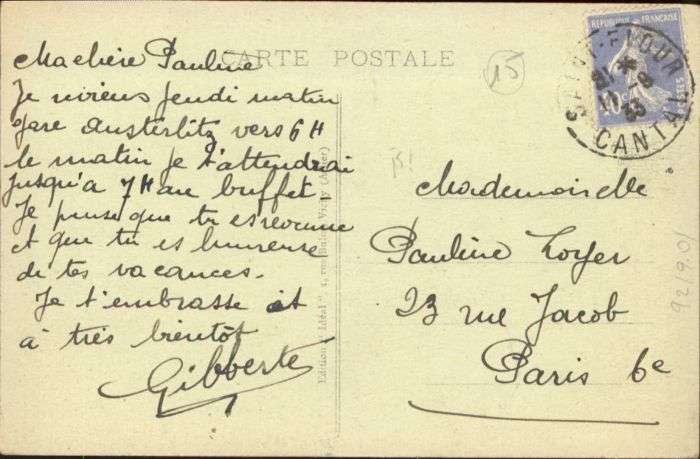 CARTE POSTALE
15
Ma chère Pauline
Je reviens jeudi matin
gare austerlitz vers 6 H
le matin je t'attendrai
jusqu'a 7 H au buffet
Je pense que tu es revenue
et que tu es heureuse
de tes vacances.
Je t'embrasse et
à très bientôt
Gilberte
RÉPUBLIQUE FRANÇAISE
SAINT-FLOUR
CANTAL
33
Mademoiselle
Pauline Loyer
23 rue Jacob
Paris 6e